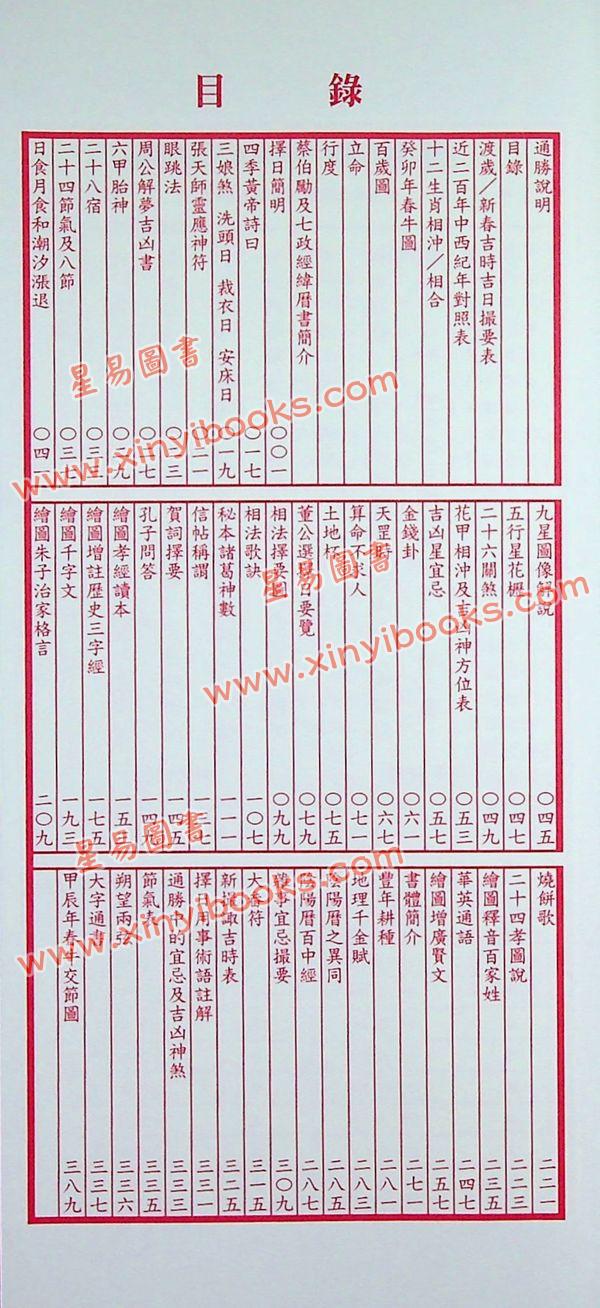 目錄
通勝說明
目錄
渡歲／新春吉時吉日撮要表
近二百年中西紀年對照表
十二生肖相沖／相合
癸卯年春牛圖
百歲圖
立命
行度
蔡伯勵及七政經緯曆書簡介
擇日簡明 〇〇一
四季黃帝詩曰 〇一七
三娘煞 洗頭日 裁衣日 安床日 〇一九
張天師靈應神符 〇二一
眼跳法 〇二三
周公解夢吉凶書 〇二七
六甲胎神 〇二九
二十八宿 〇三一
二十四節氣及八節 〇三七
日食月食和潮汐漲退 〇四一
九星圖像解說 〇四五
五行星花櫃 〇四七
二十六關煞 〇四九
花甲相沖及吉凶神方位表 〇五三
吉凶星宜忌 〇五七
金錢卦 〇六一
天罡時 〇六七
算命不求人 〇七一
土地杯 〇七五
董公選擇日要覽 〇七九
相法擇要圖 〇九九
相法歌訣 一〇七
秘本諸葛神數 一一一
信帖稱謂 一三七
賀詞擇要 一四五
孔子問答 一四九
繪圖孝經讀本 一五一
繪圖增註歷史三字經 一七五
繪圖千字文 一九三
繪圖朱子治家格言 二〇九
燒餅歌 二二一
二十四孝圖說 二二三
繪圖釋音百家姓 二三五
華英通語 二四七
繪圖增廣賢文 二五七
書體簡介 二七一
豐年耕種 二八一
地理千金賦 二八三
陰陽曆之異同 二八五
陰陽曆百中經 二八七
事宜忌撮要 三〇九
大 符 三一五
新 諏吉時表 三二五
擇日用事術語註解 三三一
通勝中的宜忌及吉凶神煞 三三三
節氣 三三五
朔望兩弦 三三六
大字通書 三三七
甲辰年春牛交節圖 三八九
星易圖書
www.xinyibooks.com
星易圖書
www.xinyibooks.com
星易圖書
www.xinyibooks.com